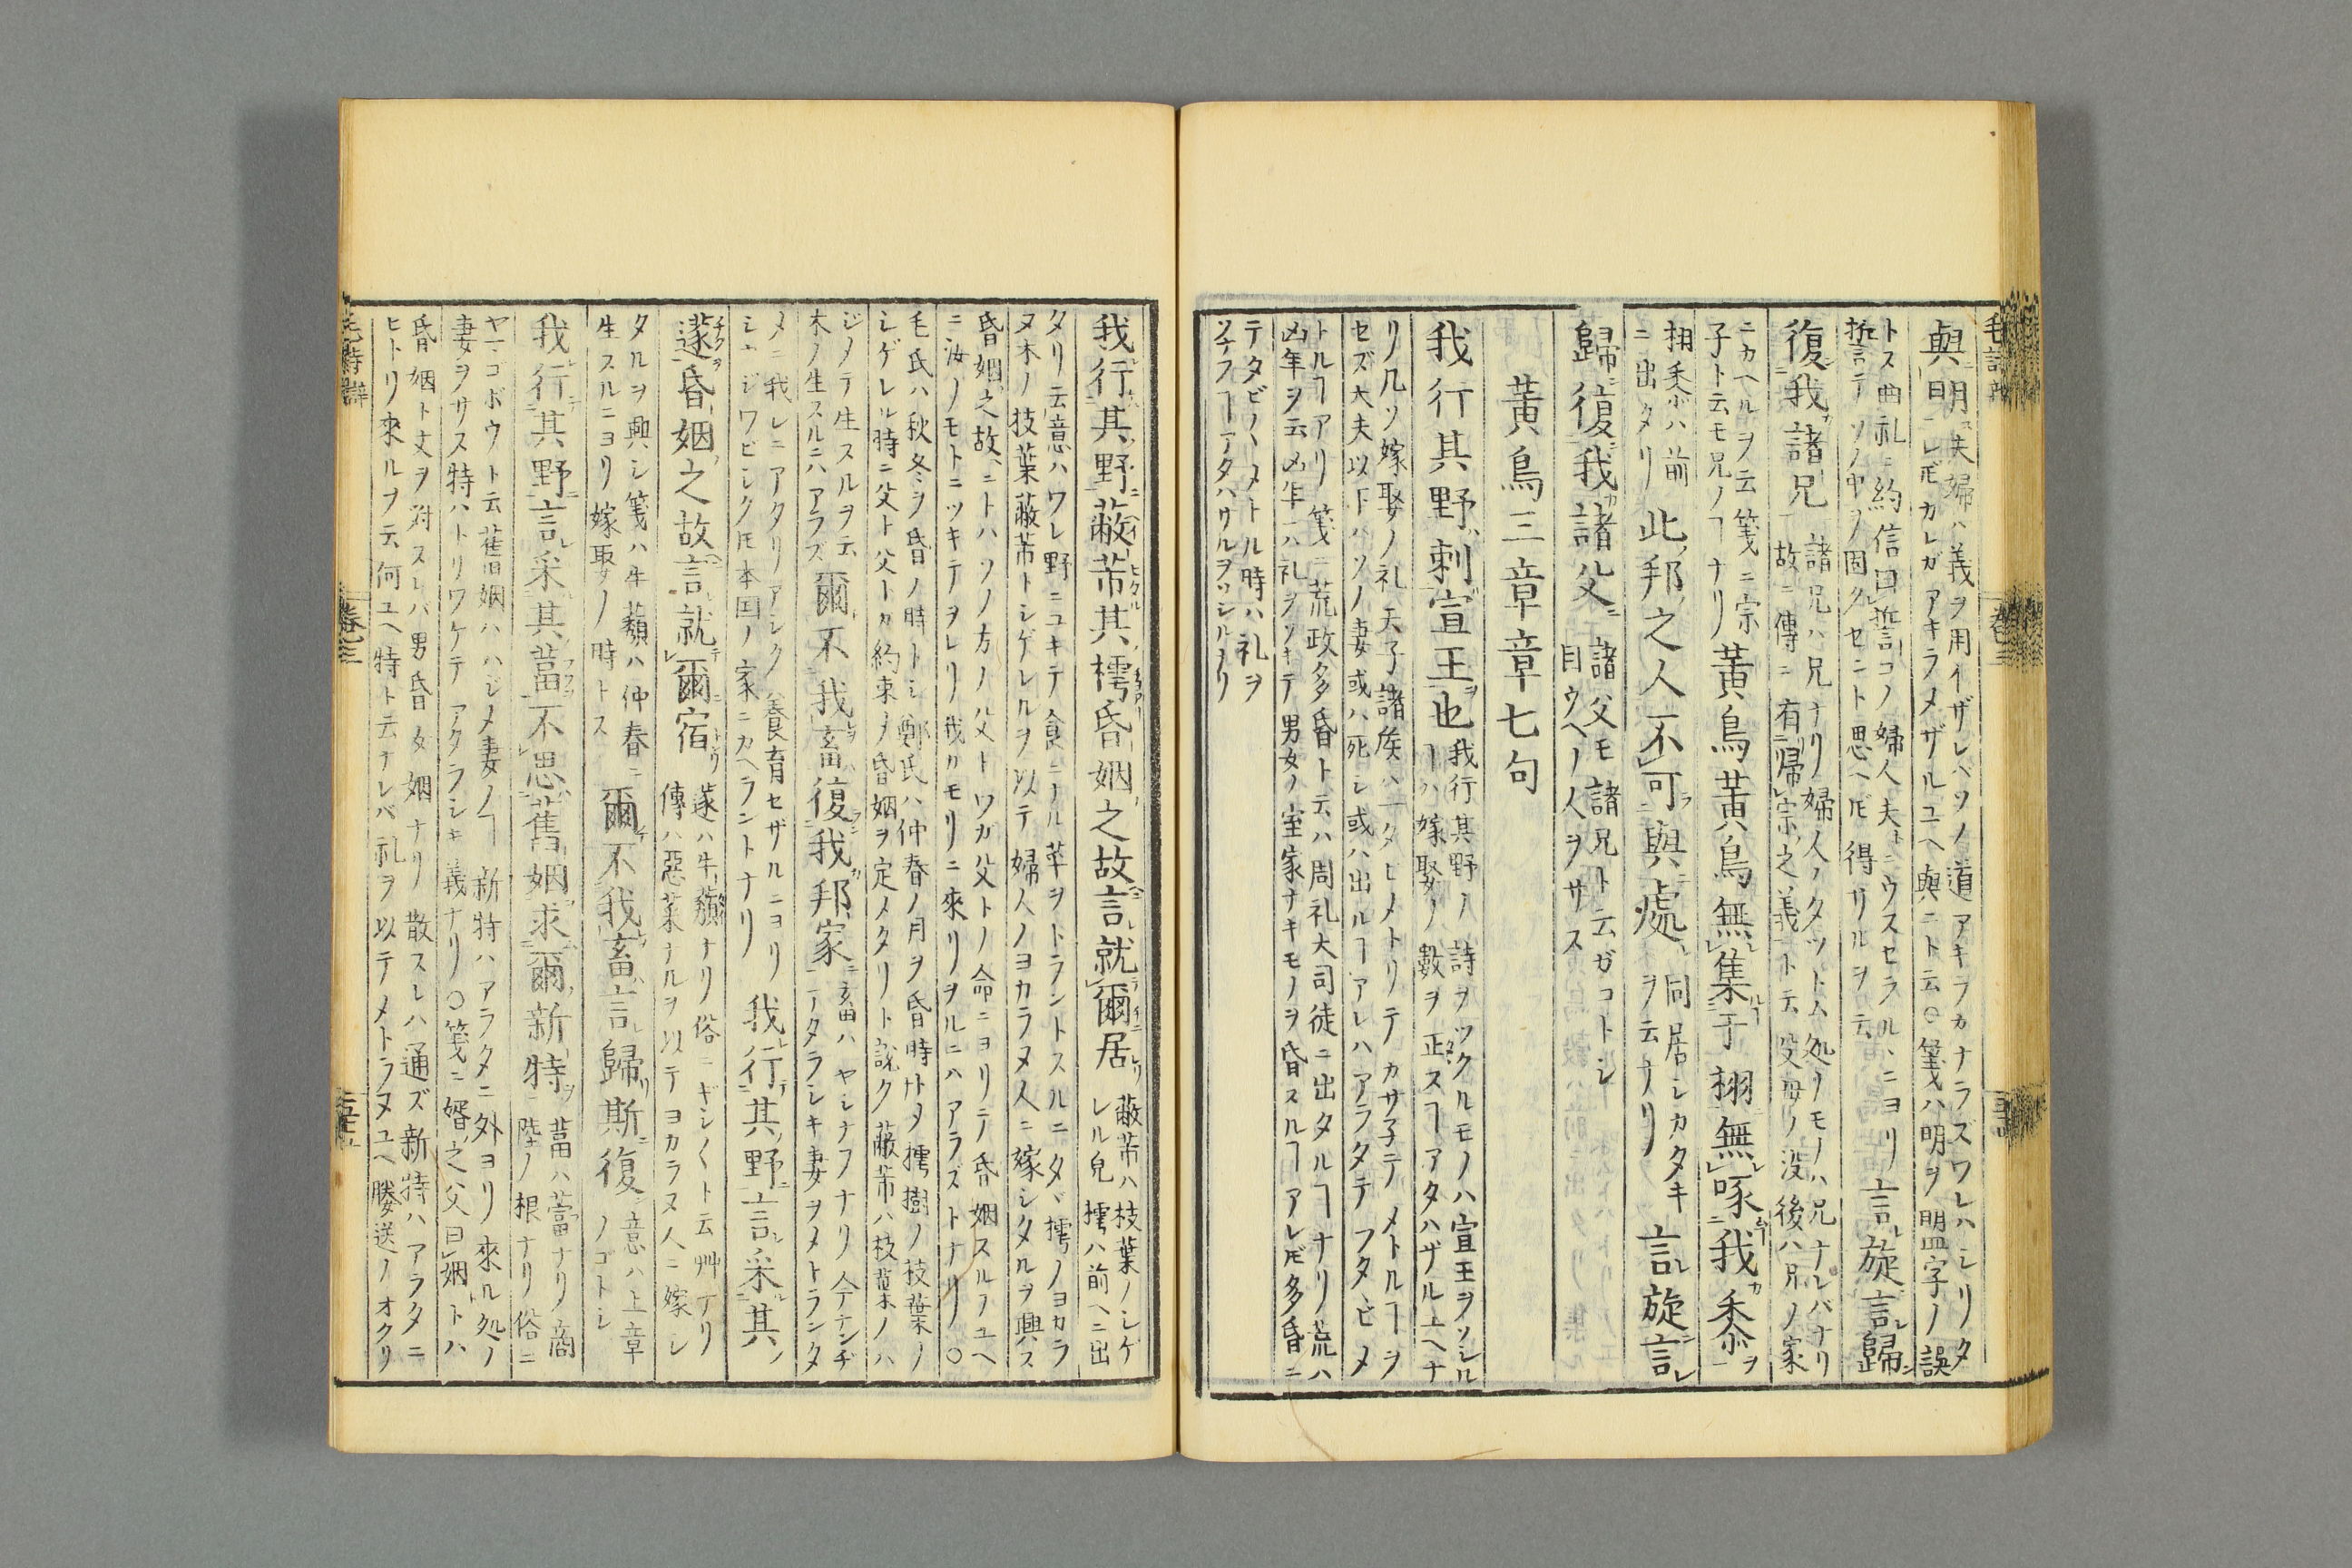 與明夫婦ハ義ヲ用イザレバソノ道アキラカナラズワレハシリタ
曰ニレ𪜈カレガアキラメザルユヘ與ニト云○箋ハ明ヲ盟字ノ誤
トス曲礼ニ約信曰誓コノ婦人夫トニウスセラルヽニヨリ
誓テソノ中ヲ固クセント思ヘ𪜈得ザルヲ云
言旋言歸
復我諸兄
諸兄ハ兄ナリ婦人ノタツトム処ノモノハ兄ナレバナリ
故ニ傳ニ有歸宗之義ト云父母ノ没後ハ兄ノ家
ニカヘルヲ云箋ニ宗
子ト云モ兄ノヿナリ
黄鳥黄鳥無集于栩無啄我黍
栩黍ハ前
ニ出タリ
此邦之人不可與處
同居シカタキ
ヲ云ナリ
言旋言
歸復我諸父
諸父モ諸兄ト云ガコトシ
目ウヘノ人ヲサス
黄鳥三章章七句
我行其野刺宣王也
我行其野ノ詩ヲツクルモノハ宣王ヲソシル
ヿハ嫁娶ノ數ヲ正スヿアタハザルユヘナ
リ凡ソ嫁娶ノ礼天子諸侯ハ一タヒメトリテカサ子テメトルヿヲ
セズ大夫以下ハソノ妻或ハ死シ或ハ出ルヿアレハアラタテフタヽビメ
トルヿアリ箋ニ荒政多昏ト云ハ周礼大司徒ニ出タルヿナリ荒ハ
凶年ヲ云凶年ニハ礼ヲソキテ男女ノ室家ナキモノヲ昏スルヿアレ𪜈多昏ニ
テタビノヽメトル時ハ礼ヲ
我行其野蔽芾其樗昏姻之故言就爾居
蔽芾ハ枝葉ノシゲ
レル皃樗ハ前ヘニ出
タリ云意ハワレ野ニユキテ食ニノル菜ヲトラントスルニタヾ樗ノヨカラ
ヌ木ノ枝葉蔽芾トシゲレルヲ以テ婦人ノヨカラヌ人ニ嫁シタルヲ興ス
昏姻之故ニトハソノ方ノ父トワガ父トノ命ニヨリテ昏姻スルノユヘ
ニ汝ノモトニツキテヲレリ我カモリニ來リヲルニハアラズトナリ○
毛氏ハ秋冬ヲ昏ノ時トシ鄭氏ハ仲春ノ月ヲ昏時トメ樗樹ノ枝葉ノ
シゲレル時ニ父ト父トカ約束ノ昏姻ヲ定メタリト説ク蔽芾ハ枝葉ノハ
ジメテ生スルヲ云
木ノ生スルニハアラズ
爾不我畜復我邦家
畜ハヤシナフナリ今ナンヂ
アタラシキ妻ヲメトランタ
メニ我レニアタリアシク養育セザルニヨリ
シヽジワビシク𪜈本国ノ家ニカヘラントナリ
我行其野言采其
蓫昏姻之故言就爾宿
蓫ハ牛蘈ナリ俗ニギシ〳〵ト云艸ナリ
傳ハ惡菜ナルヲ以テヨカラヌ人ニ嫁シ
タルヲ興シ箋ハ牛蘈ハ仲春ニ
生スルニヨリ嫁娶ノ時トス
爾不我畜言歸斯復
意ハ上章
ノゴトシ
我行其野言采其葍不思舊姻求爾新特
葍ハ葍ナリ商
陸ノ根ナリ俗ニ
ヤマコボウト云舊姻ハハジメ妻ノヿ新特ハアラタニ外ヨリ來ル処ノ
妻ヲサス特ハトリワケテアタラシキ義ナリ○箋ニ婿之父曰姻トハ
昏姻ト丈ヲ対スレバ男昏女姻ナリ散スレハ通ズ新特ハアラタニ
ヒトリ來ルヲ云何ユヘ特ト云ナレバ礼ヲ以テメトラヌユヘ媵送ノオクリ
毛詩辭
卷之三